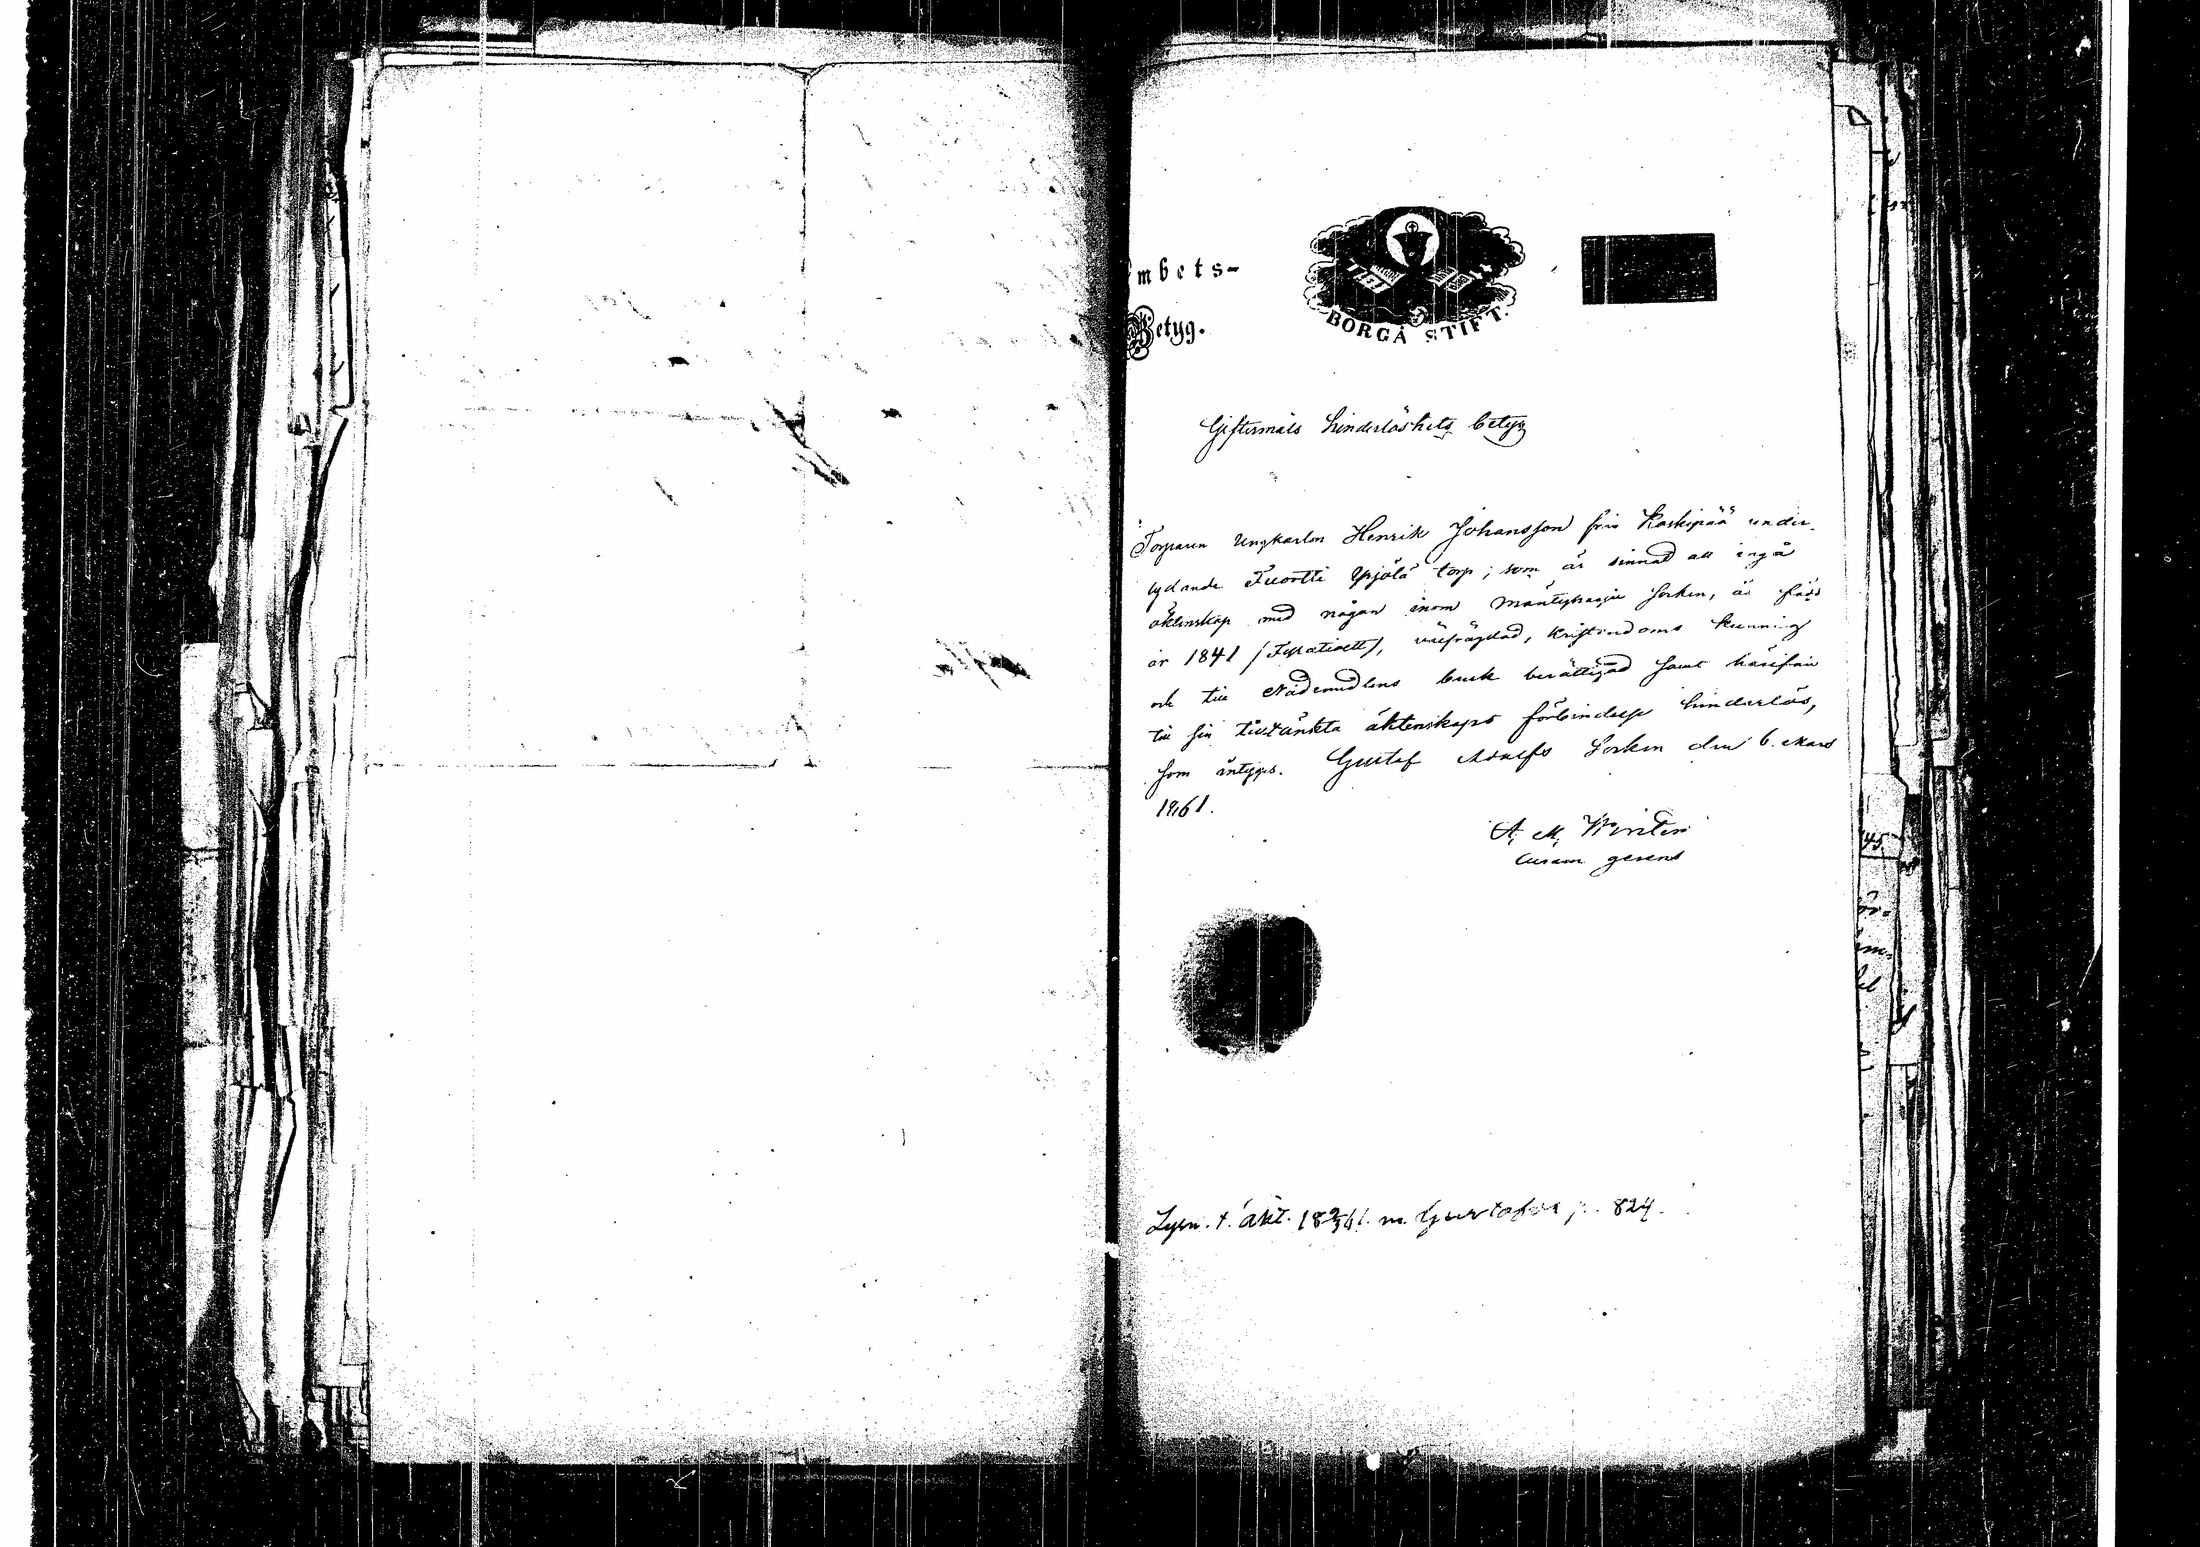 mbets-
Betyg.
BORGÅ STIFT.
Giftermåls hinderlöshets betyg
Torparen Ungkarlen Henrik Johansson från Koskipää under-
lydande Tuortti Yrjölä torp; som är sinnad att ingå
äktenskap med någon inom Mäntyharju Socken, är född
år 1841 (Fyratioett), välfrägdad, kristendoms kunnig
och till Nådemedlens bruk berättigad samt härifrån
till sin tilltänkta äktenskaps förbindelse hinderlös,
som intygas. Gustaf Adolfs Socken den 6. Mars
1861.
A. M. Winter
curam gerens
Lysn. t. äkt. m. Gustafva p. 824.
45.